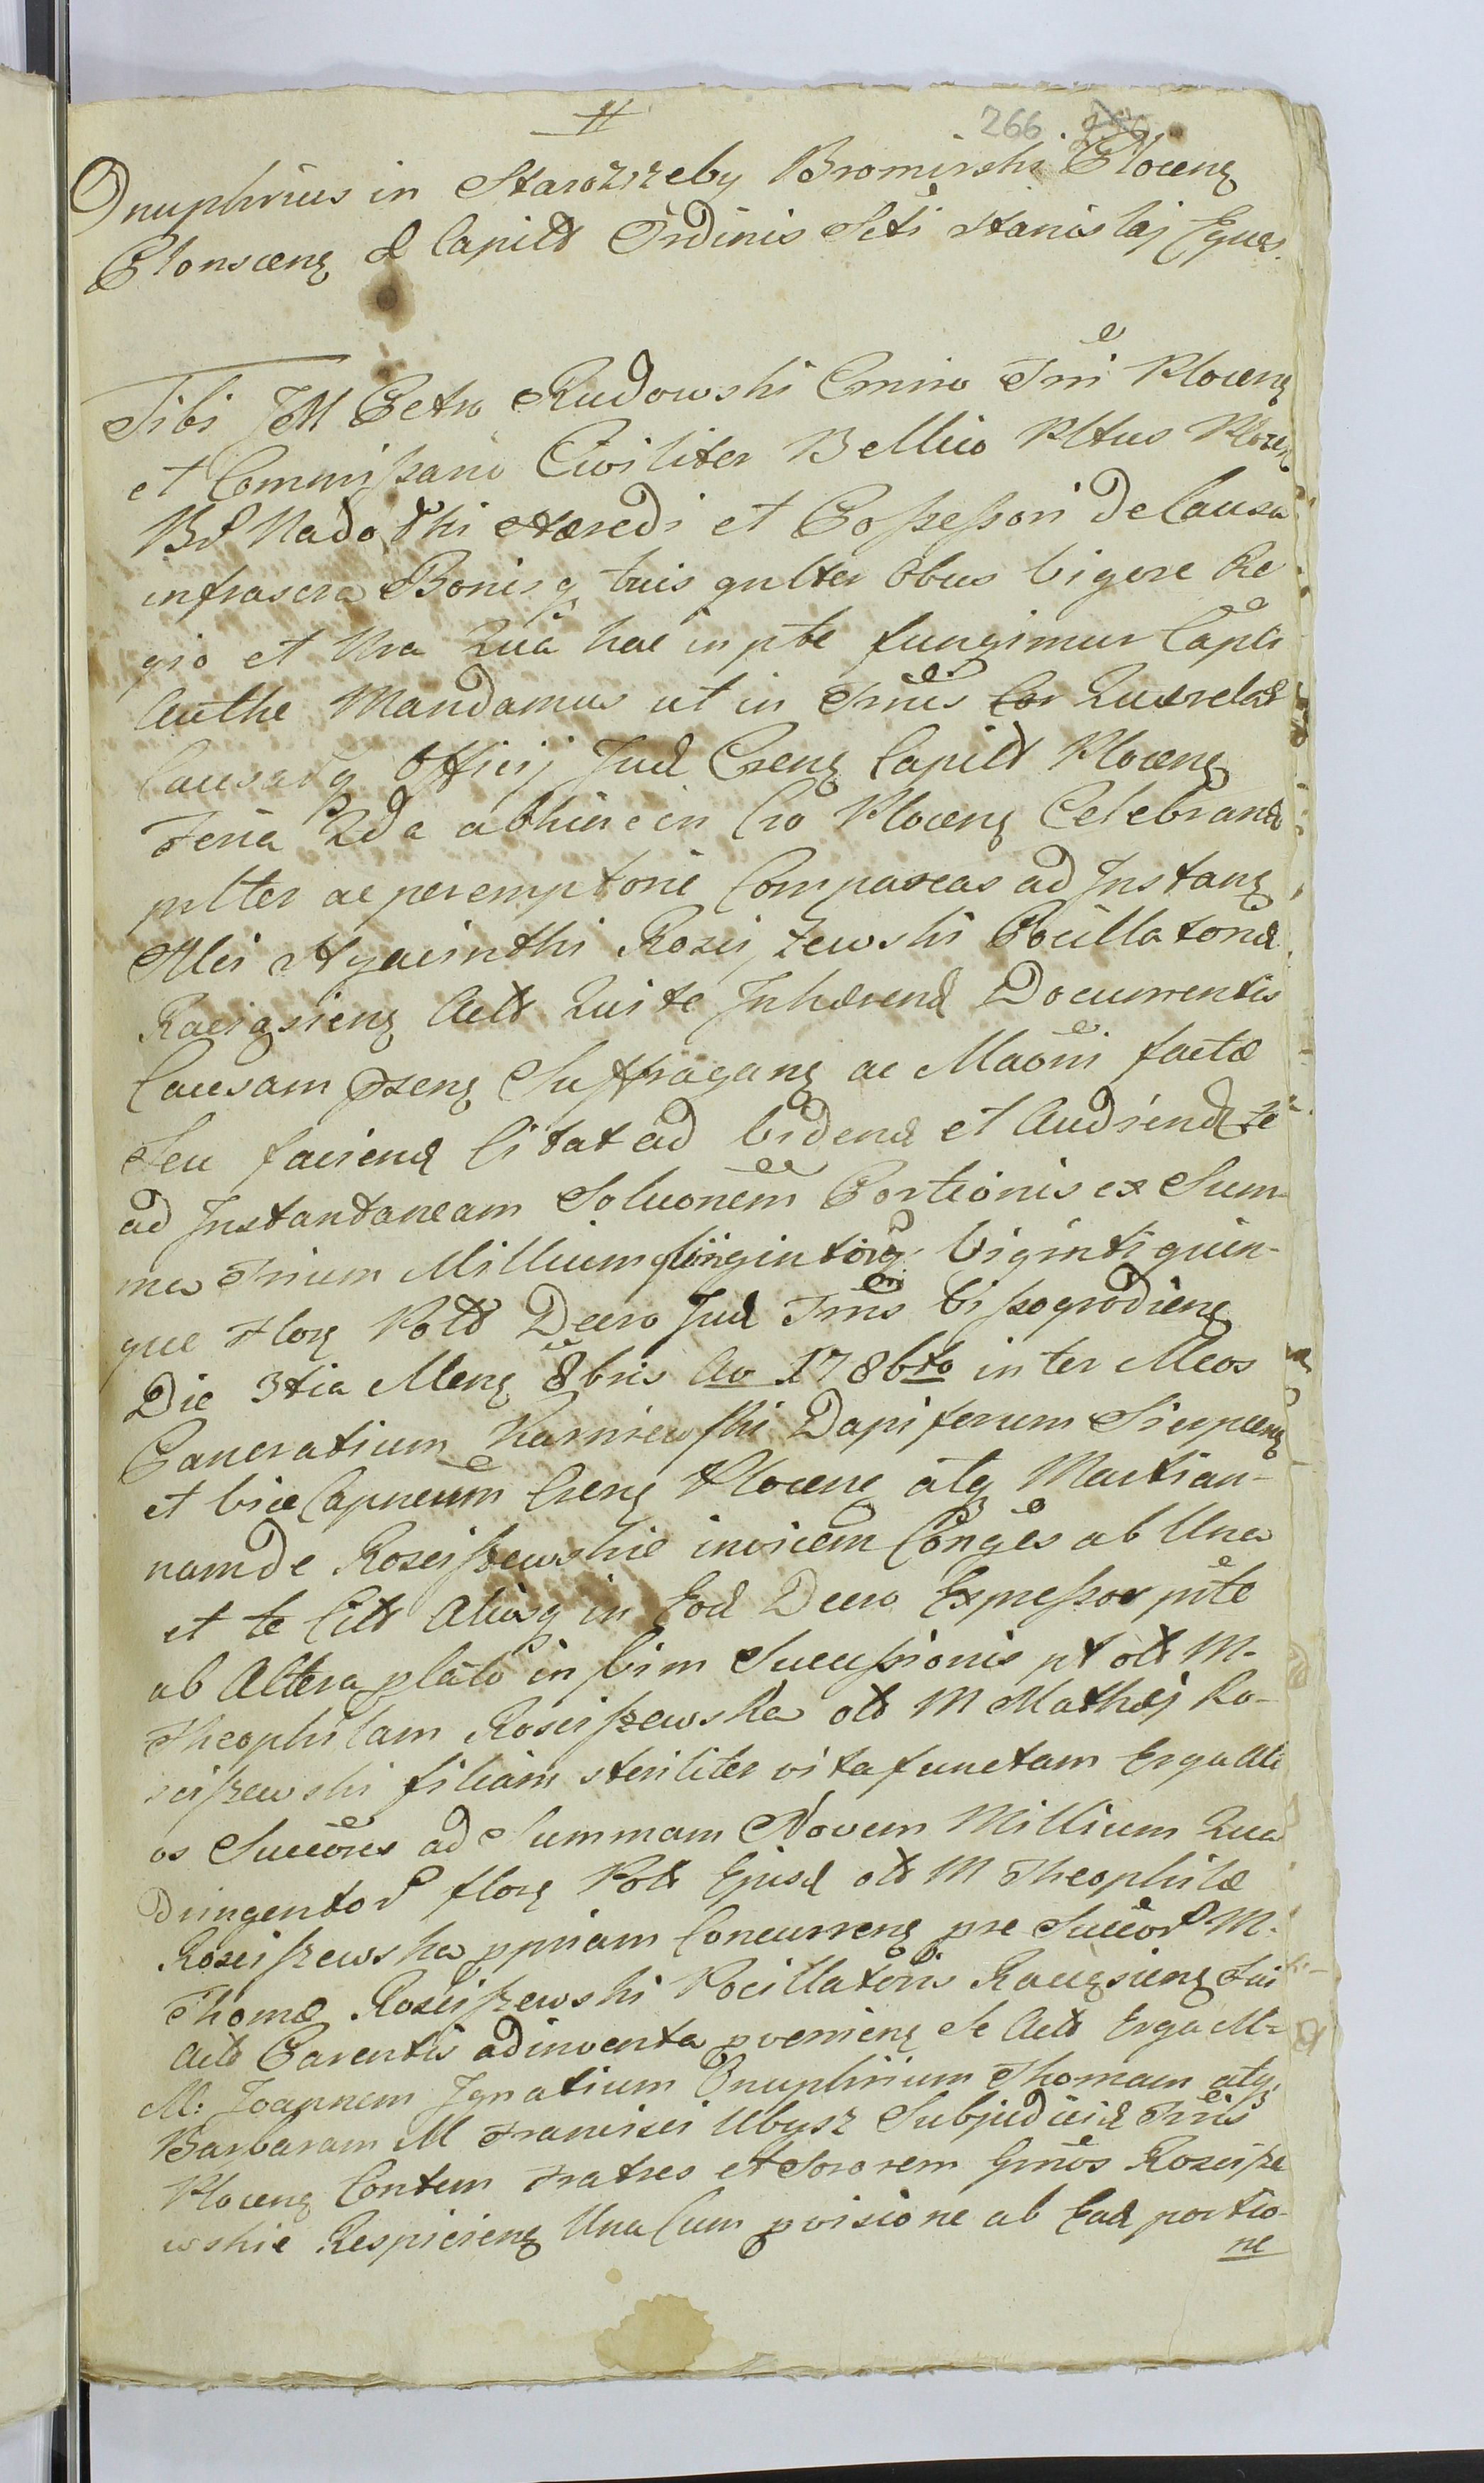 #
266
Onuphrius in Starozrzeby Bromirski Plocens
Plonscens & Capits Ordinis Scti Stanislaj Eques.
Tibi JM Petro Rudowski Cmiro Tri Plocens
et Commissario Civiliter Bellico Pltus Plocen
Bd Nado ski Hæredi et Possessori De Causa
infrascra Bonisq tuis gnlter Obus Vigore Re
gio et Nra Qua hac in pte fungimur Capli
Authe Mandamus ut in Trnis Cor Querelar
Causarq Officij Jud Csens Capits Plocens
Feria 2da abhinc in Cro Plocens Celebrand
pnlter ac peremptorie Compareas ad Instans
Mci Hyacinthi Rosciszewski Pocillatoris
Raciasiens Acts Qui te Inhærend Documentis
Causam Pzens Suffragans ac Maoni factæ
Seu faciend Citat ad Vidend et Audiend Te
ad Instantaneam Soluonem Portionis ex Sum
ma Trium Millium quingintorq Viginti quin-
que Flors Pols Decro Jud Trnis Vissogrodiens
Die 3tia Mens 8bris Ao 1786to inter Mcos
Pancratium Karniewski Dapiferum Sierpcens
et Vice Capneum Csens Plocens atq Martian-
nam de Rosciszewskie invicem Conges ab Una
et te Cits Aliosq in Eod Decro Expressos pte
ab Altera plato in Vim Successionis pt ots M.
Theophilam Rosciszewska ots M Mathæj Ro-
sciszewski filiam steriliter vita functam Erga Ali
os Succores ad Summam Novem Millium Qua
Dringentor flors Pols Ejusd ots M Theophilæ
Rosciszewska ppriam Concurrens pre Succor M.
Thomæ Rosciszewski Pocillatoris Raciąsiens Sui
Acts Parentis adinventa pveniens Se Acts Erga M-
M: Joannem Ignatium Onuphrium Thomam atq
Barbaram M Francisci Ubysz Subjudicis Trris
Plocens Contem Fratres et Sororem Gnos Roscisze
wskie Respiciens Una Cum pvisione ab Ead portio-
ne